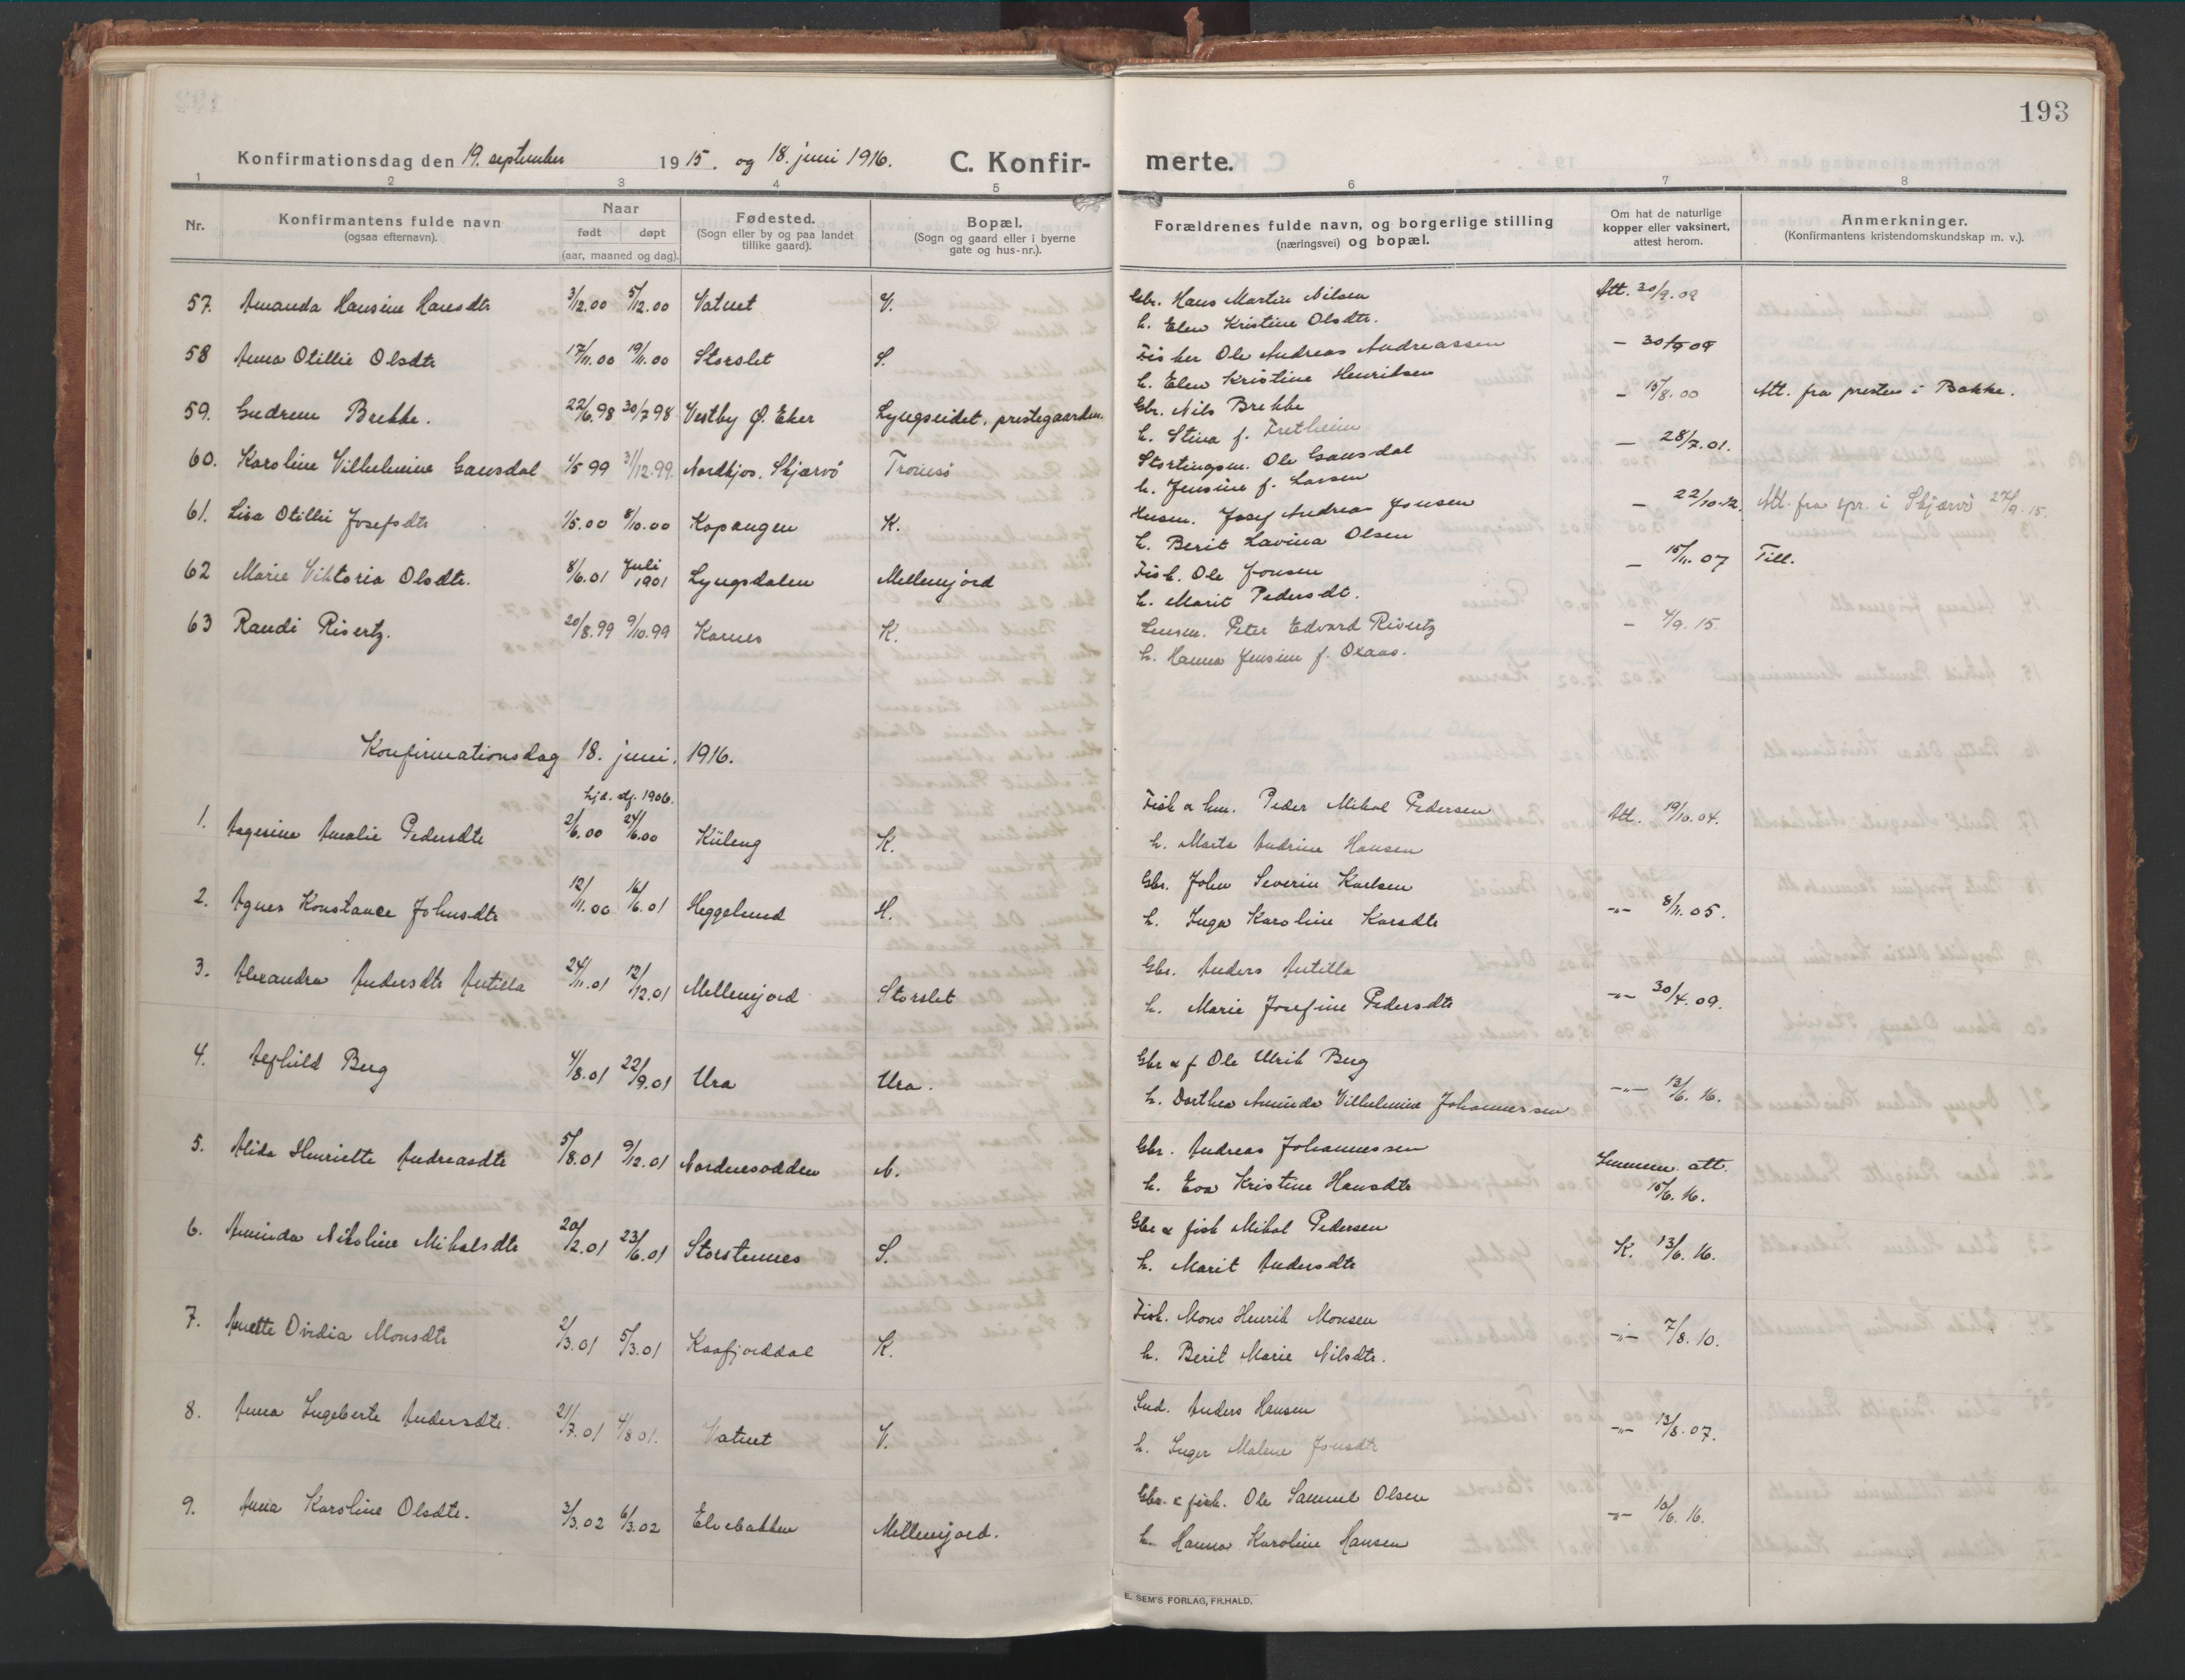 193
Konfirmationsdag den 19. september 1915. og 18. juni 1916. C. Konfir- merte.
1 2 3 4 5 6 7 8
Nr. Konfirmantens fulde navn (ogsaa efternavn). Naar født døpt (aar, maaned og dag). Fødested. (Sogn eller by og paa landet tillike gaard). Bopæl. (Sogn og gaard eller i byerne gate og hus-nr.). Forældrenes fulde navn, og borgerlige stilling (næringsvei) og bopæl. Om hat de naturlige kopper eller vaksinert, attest herom. Anmerkninger. (Konfirmantens kristendomskundskap m. v.).
57. Amanda Hansine Hansdtr 3/12.00 5/12.00 Vatnet V. Gbr. Hans Martin Nilsen Att. 30/9.09
h. Elen Kristine Olsdtr.
58 Anna Otillie Olsdtr 17/11.00 19/11.00 Storslet S. Fisker Ole Andreas Andreassen – 30/9 09
h. Elen Kristine Henriksen
59. Gudrun Brekke. 22/6.98 30/7 98 Vestby Ø. Eker Lyngseidet, prestegaarden. Gbr. Nils Brekke – 15/8.00 Att. fra presten i Bakke.
h. Stina f. Fretheim
60. Karoline Vilhelmine Gausdal 1/5 99 31/12.99. Nordkjos. Skjærvö Tromsö Stortingsm. Ole Gausdal – 28/7.01.
h. Jensine f. Larsen
61. Lisa Otillie Josefsdtr 1/5.00 8/10.00 Kopangen K. Husm. Josef Andreas Jensen – 22/10.12. Att. fra spr. i Skjærvö 27/9.15.
h. Berit Lavina Olsen
62 Marie Viktoria Olsdtr. 8/6.01 Juli 1901 Lyngsdalen Mellemjord Fisk. Ole Jonsen – 15/11.07 Till.
h. Marit Pedersdt.
63 Randi Rivertz. 20/8.99 9/10.99 Karnes K. Lensm. Peter Edvard Rivertz – 4/9.15.
h. Hanna Jensine f. Oxaas.
Konfirmationsdag 18. juni, 1916.
hjd. df. 1906.
1. Aagesine Amalie Pedersdtr 2/6.00 24/6.00 Küleng K. Fisk & hm. Peder Mikal Pedersen Att. 19/10.04.
h. Marta Andrine Hansen
2. Agnes Konstance Johnsdtr 12/11.00 16/6.01 Heggelund H. Gbr. John Severin Karlsen –"– 8/11.05.
h. Inga Karoline Karsdtr
3. Alexandra Andersdtr Antilla 24/11.01 12/12.01 Mellemjord Storslet Gbr. Anders Antilla –"– 30/4.09.
h. Marie Josefine Pedersdtr
4. Alfhild Berg 4/8.01 22/9.01 Ura Ura. Gbr & f Ole Ulrik Berg –"– 13/6.16.
h. Dorthea Aminda Vilhelmine Johannessen
5. Alida Henriette Andreasdtr 5/8.01 9/12.01 Nordnesodden N. Gbr. Andreas Johannessen Lemmen. att.
h. Eva Kristine Hansdtr 15/6.16.
6. Aminda Nikoline Mikalsdtr 20/2.01 23/6.01 Storstennes S. Gbr & fisk Mikal Pedersen K. 13/6.16.
h. Marit Andersdtr
7. Anette Ovidia Monsdtr 2/3.01 5/3.01 Kaafjorddal K. Fisk. Mons Henrik Monsen –"– 7/8.10.
h. Berit Marie Nilsdtr.
8. Anna Ingeberte Andersdtr. 21/7.01 4/8 01. Vatnet V. Ind. Anders Hansen –"– 13/8.07.
h. Inger Malene Jonsdtr
9. Anna Karoline Olsdtr. 3/3.02 6/3.02 Elvebakken Mellemjord. Gbr. & fisk. Ole Samuel Olsen –"– 10/6.16.
h. Hanna Karoline Hansen
E. SEM'S FORLAG, FR.HALD.